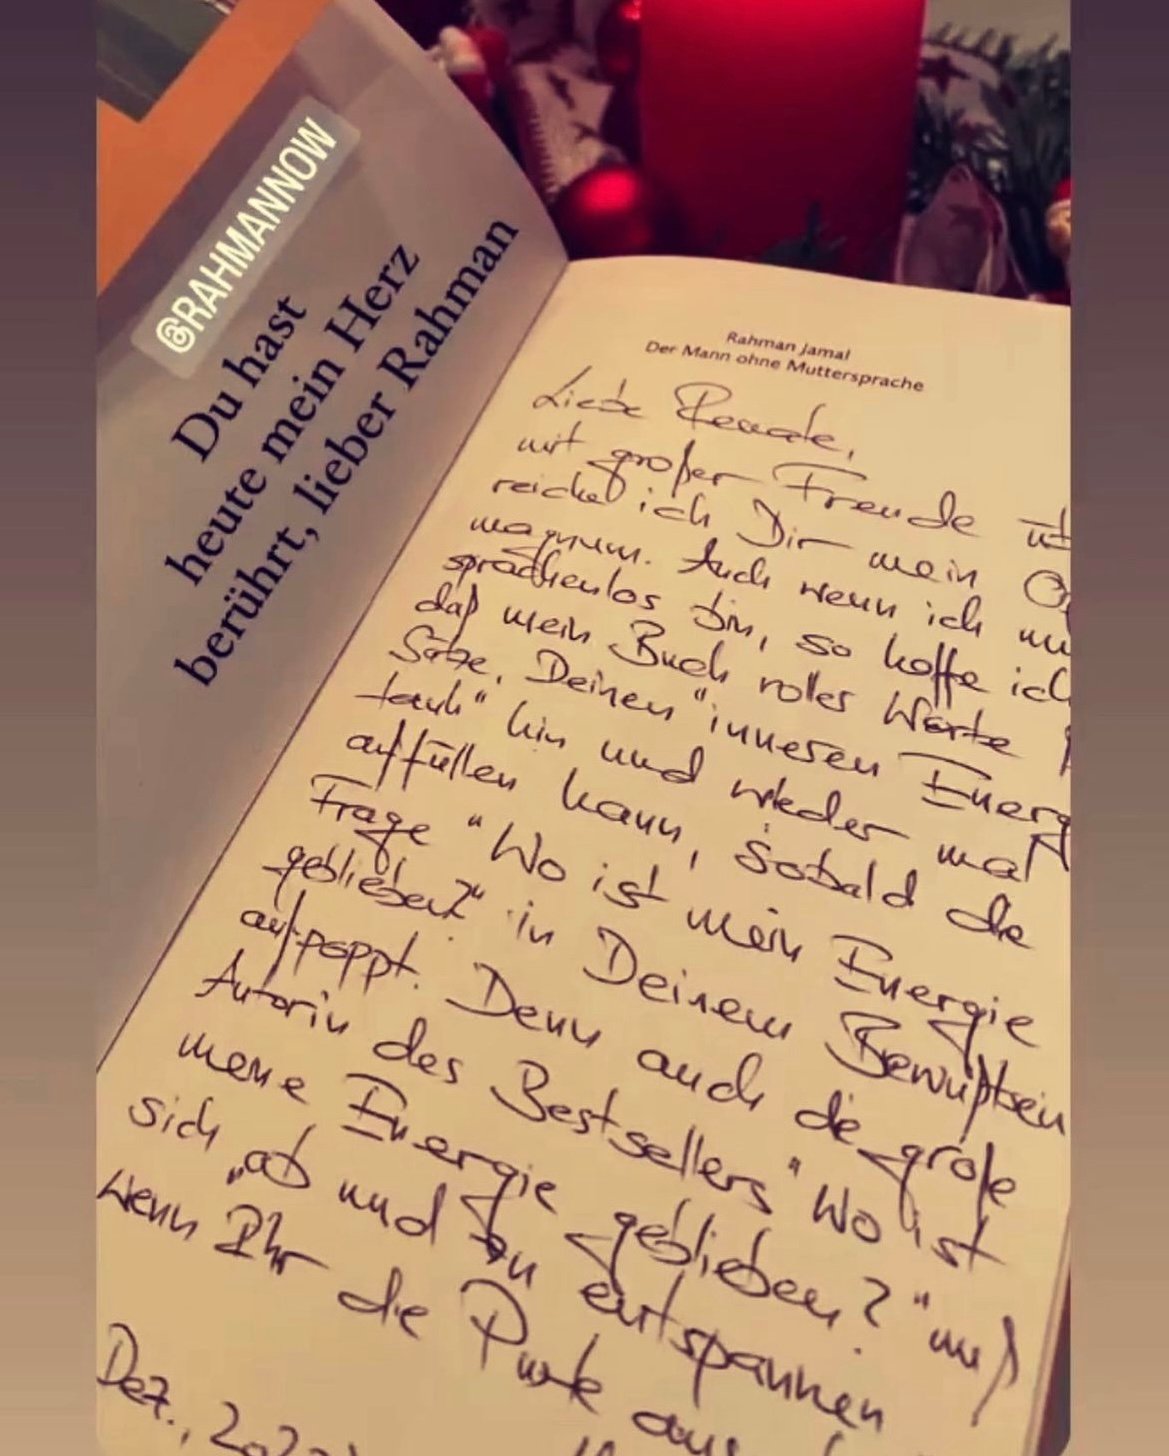 @RAHMANNOW
Du hast
heute mein Herz
berührt, lieber Rahman
Rahman Jamal
Der Mann ohne Muttersprache
Liebe Renate,
mit großer Freude üb
reiche ich Dir mein O
magnum. Auch wenn ich mu
sprachenlos bin, so hoffe ich
daß mein Buch voller Worte
Sätze, Deinen "inneren Energ
tank" hin und wieder mal
auffüllen kann, sobald die
Frage "Wo ist mein Energie
geblieben?" in Deinem Bewußtsein
auf-poppt. Denn auch die große
Autorin des Bestsellers "Wo ist
meine Energie geblieben?" muß
sich "ab und zu entspannen
wenn Ihr die Puste aus
Dez., 202